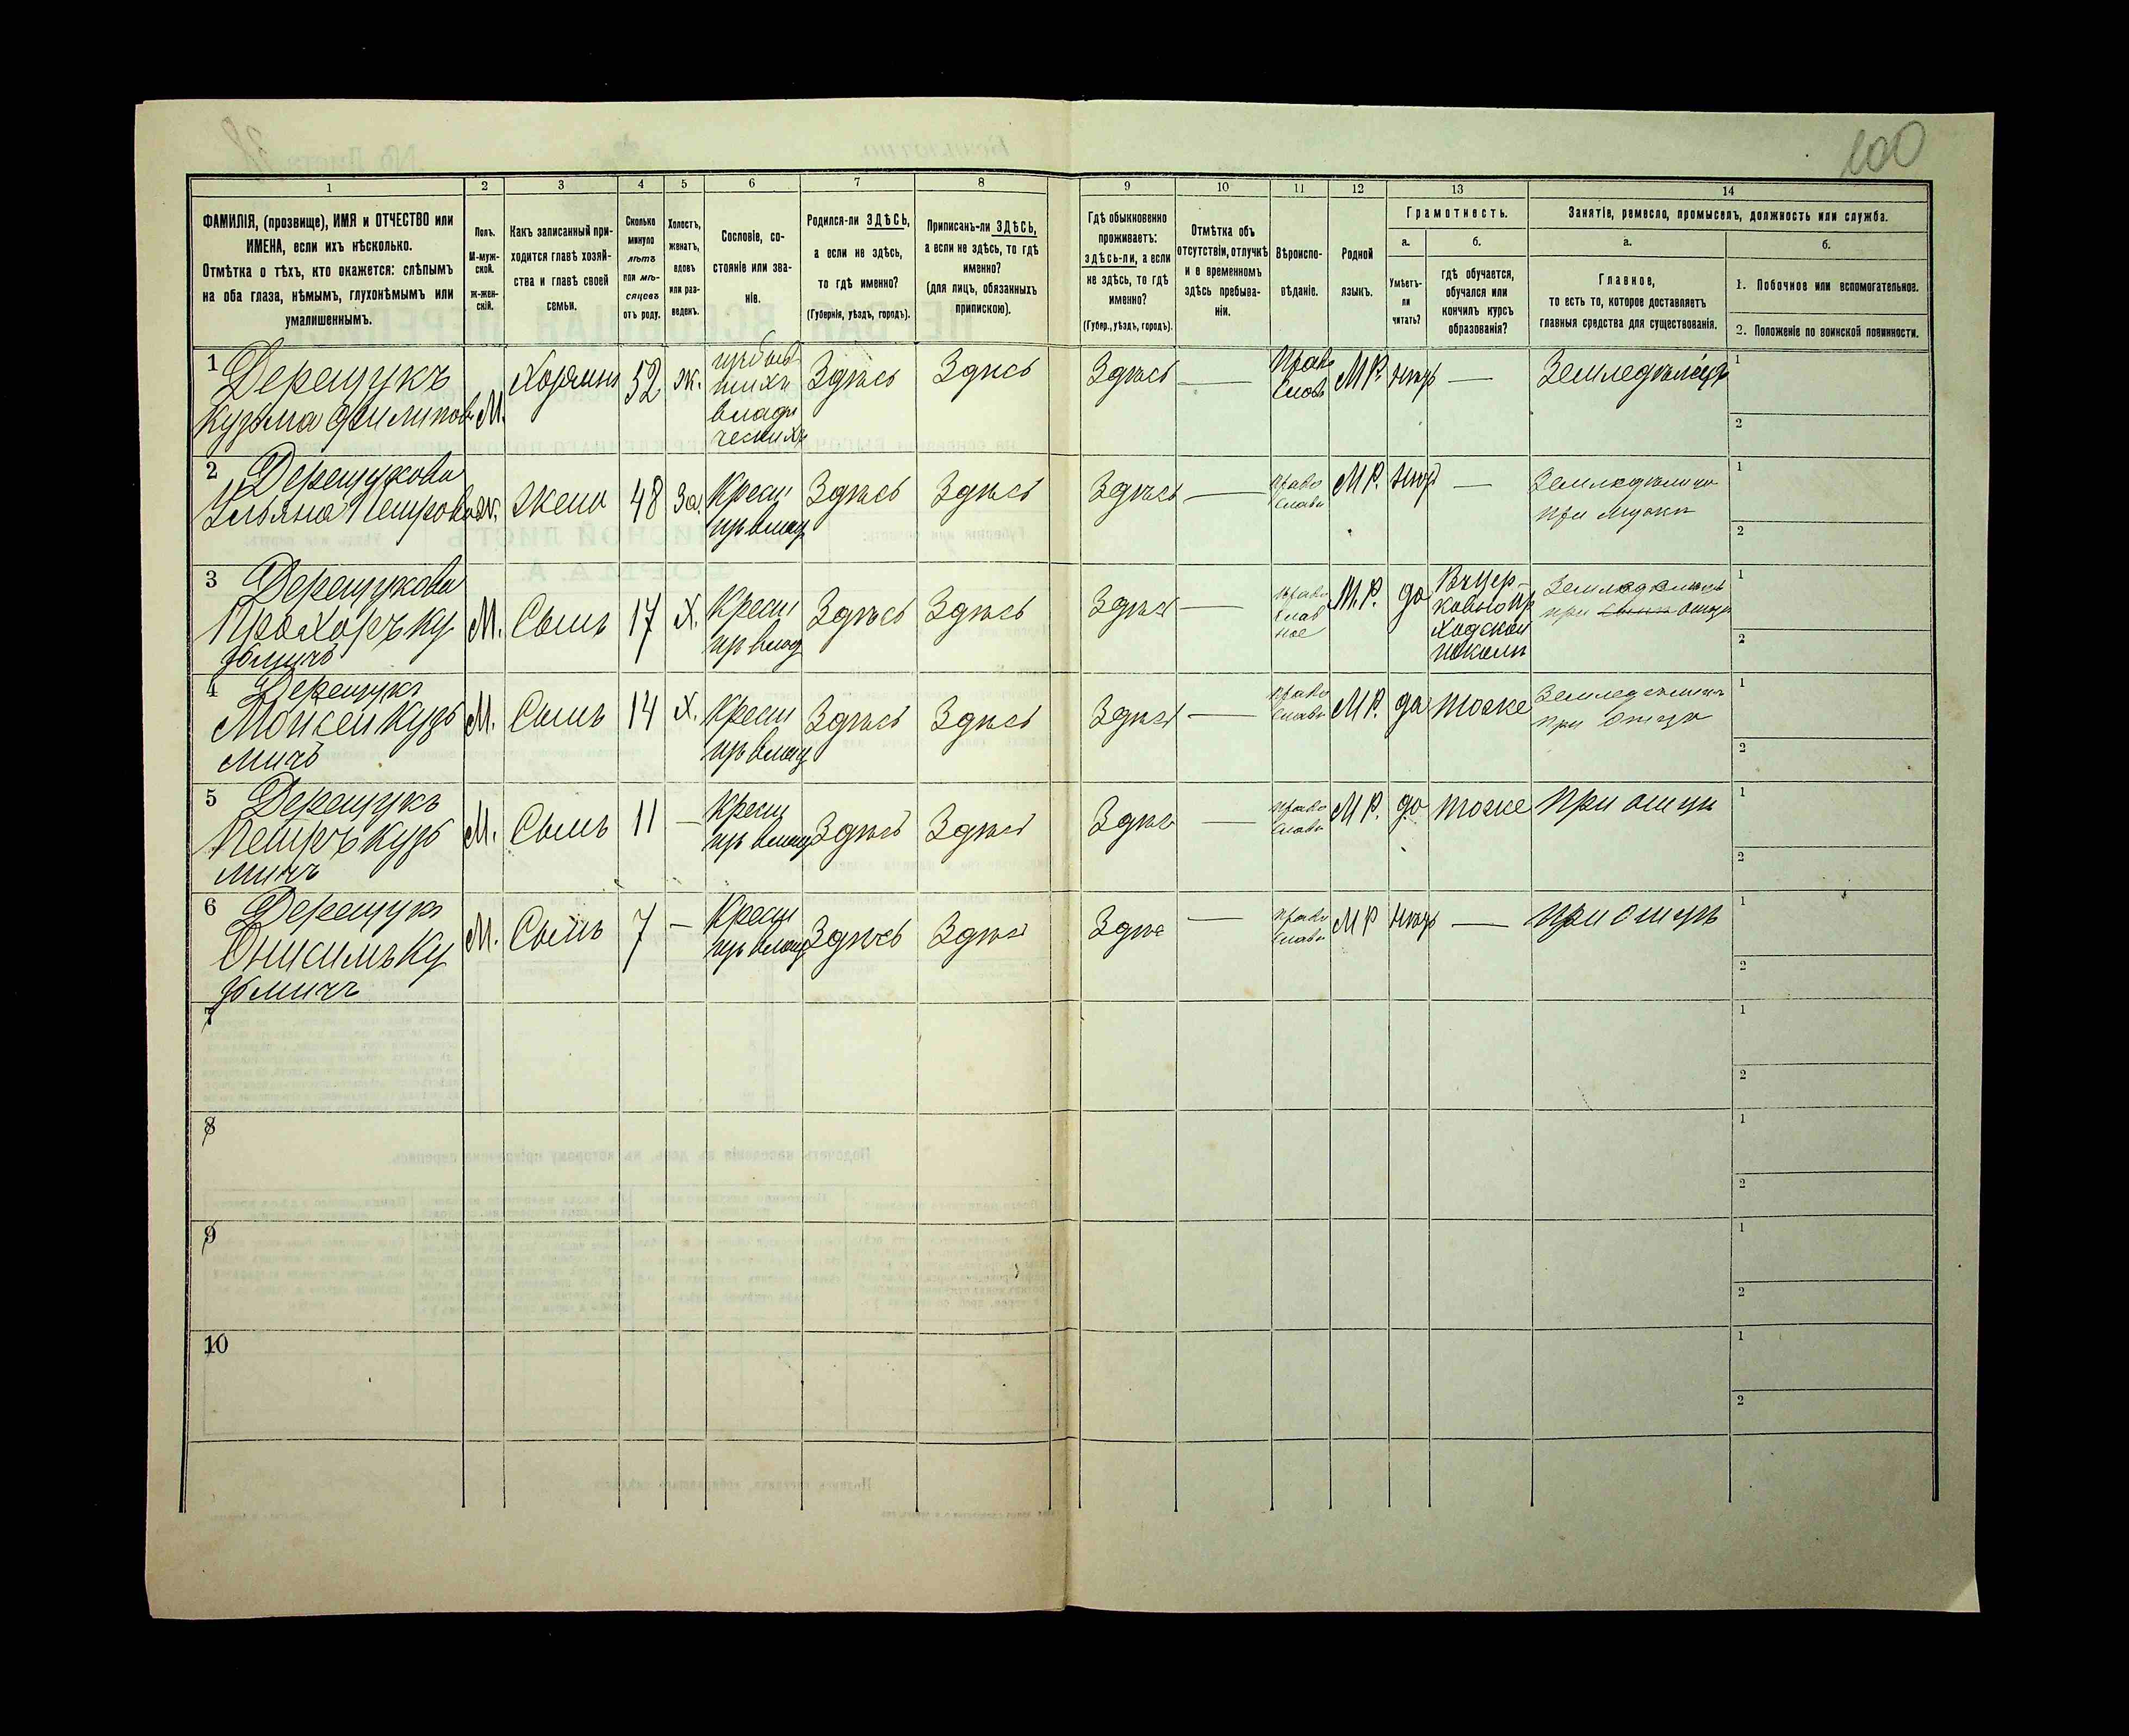 100
1 2 3 4 5 6 7 8 9 10 11 12 13 14
ФАМИЛІЯ, (прозвище), ИМЯ и ОТЧЕСТВО или
ИМЕНА, если ихъ нѣсколько.
Отмѣтка о тѣхъ, кто окажется: слѣпымъ
на оба глаза, нѣмымъ, глухонѣмымъ или
умалишеннымъ.
Полъ.
М-муж-
ской.
ж-жен-
скій.
Какъ записанный при-
ходится главѣ хозяй-
ства и главѣ своей
семьи.
Сколько
минуло
лѣтъ
или мѣ-
сяцевъ
отъ роду.
Холостъ,
женатъ,
вдовъ
или раз-
веденъ.
Сословіе, со-
стояніе или зва-
ніе.
Родился-ли ЗДѢСЬ,
а если не здѣсь,
то гдѣ именно?
(Губернія, уѣздъ, городъ).
Приписанъ-ли ЗДѢСЬ,
а если не здѣсь, то гдѣ
именно?
(для лицъ, обязанныхъ
припискою).
Гдѣ обыкновенно
проживаетъ:
здѣсь-ли, а если
не здѣсь, то гдѣ
именно?
(Губер., уѣздъ, городъ).
Отмѣтка объ
отсутствіи, отлучкѣ
и о временномъ
здѣсь пребыва-
ніи.
Вѣроиспо-
вѣданіе.
Родной
языкъ.
Грамотность.
а.
Умѣетъ-
ли
читать?
б.
гдѣ обучается,
обучался или
кончилъ курсъ
образованія?
Занятіе, ремесло, промыселъ, должность или служба.
а.
Главное,
то есть то, которое доставляетъ
главныя средства для существованія.
б.
1. Побочное или вспомогательное.
2. Положеніе по воинской повинности.
1 Дерещукъ
Кузьма Филипов М. Хозяинъ 52 ж. Здѣсь Здѣсь Здѣсь — Право Слав М Р. нѣтъ — Земледѣлецъ 1 2
2 Дерещукова
Ульяна Петрова ж. Жена 48 За. Крест Здѣсь Здѣсь Здѣсь — Право Слав М Р. нѣтъ — при мужи 1 2
3 Дерещукова
Прохоръ Ку
зьмичъ М. Сынъ 17 Х. Крест Здѣсь Здѣсь Здѣсь — Право Слав ное М. Р. да Въ Цер-
ковно пр
ходской
школи при отци 1 2
4 Дерещукъ
Моисей Кузь
мичъ М. Сынъ 14 Х. Крест Здѣсь Здѣсь Здѣсь — Право Слав М Р. да тоже при отци 1 2
5 Дерещукъ
Петръ Кузь
мичъ М. Сынъ 11 — Крест Здѣсь Здѣсь Здѣсь — Право Слав М Р. да тоже при отци 1 2
6 Дерещук
Онисимъ Ку
зьмичъ М. Сынъ 7 — Крест Здѣсь Здѣсь Здѣсь — Право Слав М Р нѣтъ — при отцѣ 1 2
7 1 2
8 1 2
9 1 2
10 1 2